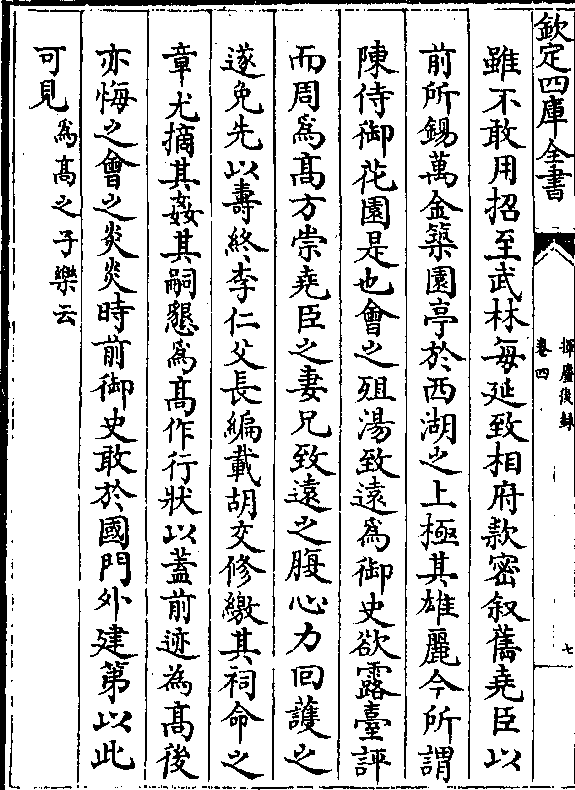 欽定四庫全書
揮麈後録
卷四
七
雖不敢用招至武林每延致相府款密叙舊堯臣以
前所錫萬金築園亭於西湖之上極其雄麗今所謂
陳侍御花園是也會之殂湯致遠為御史欲露臺評
而周為髙方崇堯臣之妻兄致遠之腹心力回護之
遂免先以壽終李仁父長編載胡交修繳其祠命之
章尤摘其姦其嗣懇為髙作行狀以蓋前迹為髙後
亦悔之會之炎炎時前御史敢於國門外建第以此
可見為髙之子樂云